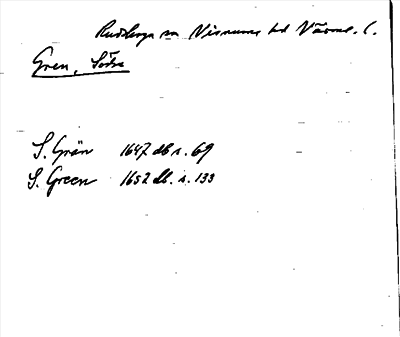 Rudskoga sn Visnums hd Värml. l.
Gren, Södra
S. Grän 1647 db s. 69
S. Green 1652 db. s. 133